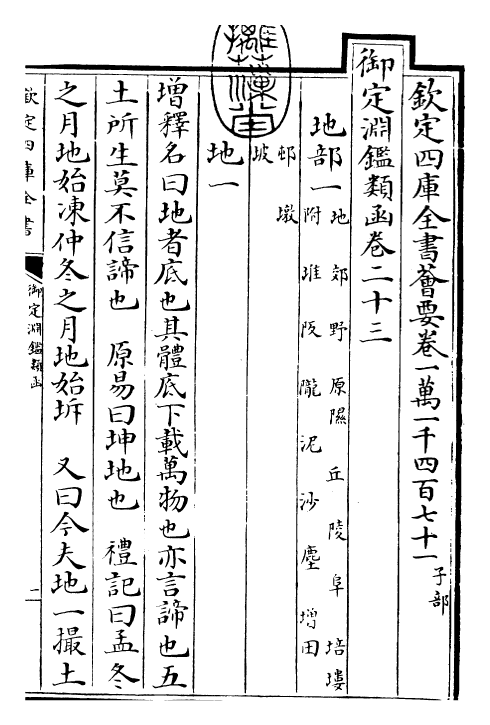 欽定四庫全書薈要卷一萬一千四百七十一子部
御定淵鑑類函卷二十三
地部一地 郊 野 原隰 丘 陵 阜 培塿
附 堆 阪 隴 泥 沙 塵 增田
邨 墩
坡
地一
增釋名曰地者底也其體底下載萬物也亦言諦也五
土所生莫不信諦也 原易曰坤地也 禮記曰孟冬
之月地始凍仲冬之月地始坼 又曰今夫地一撮土
欽定四庫全書
御定淵鑑類函
一